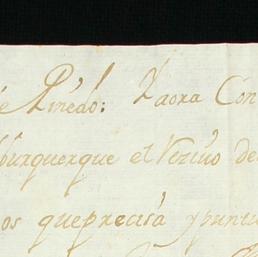 e Pinedo: Yaora Con
burquerque el Vezino de
os queprecisa ypuntu